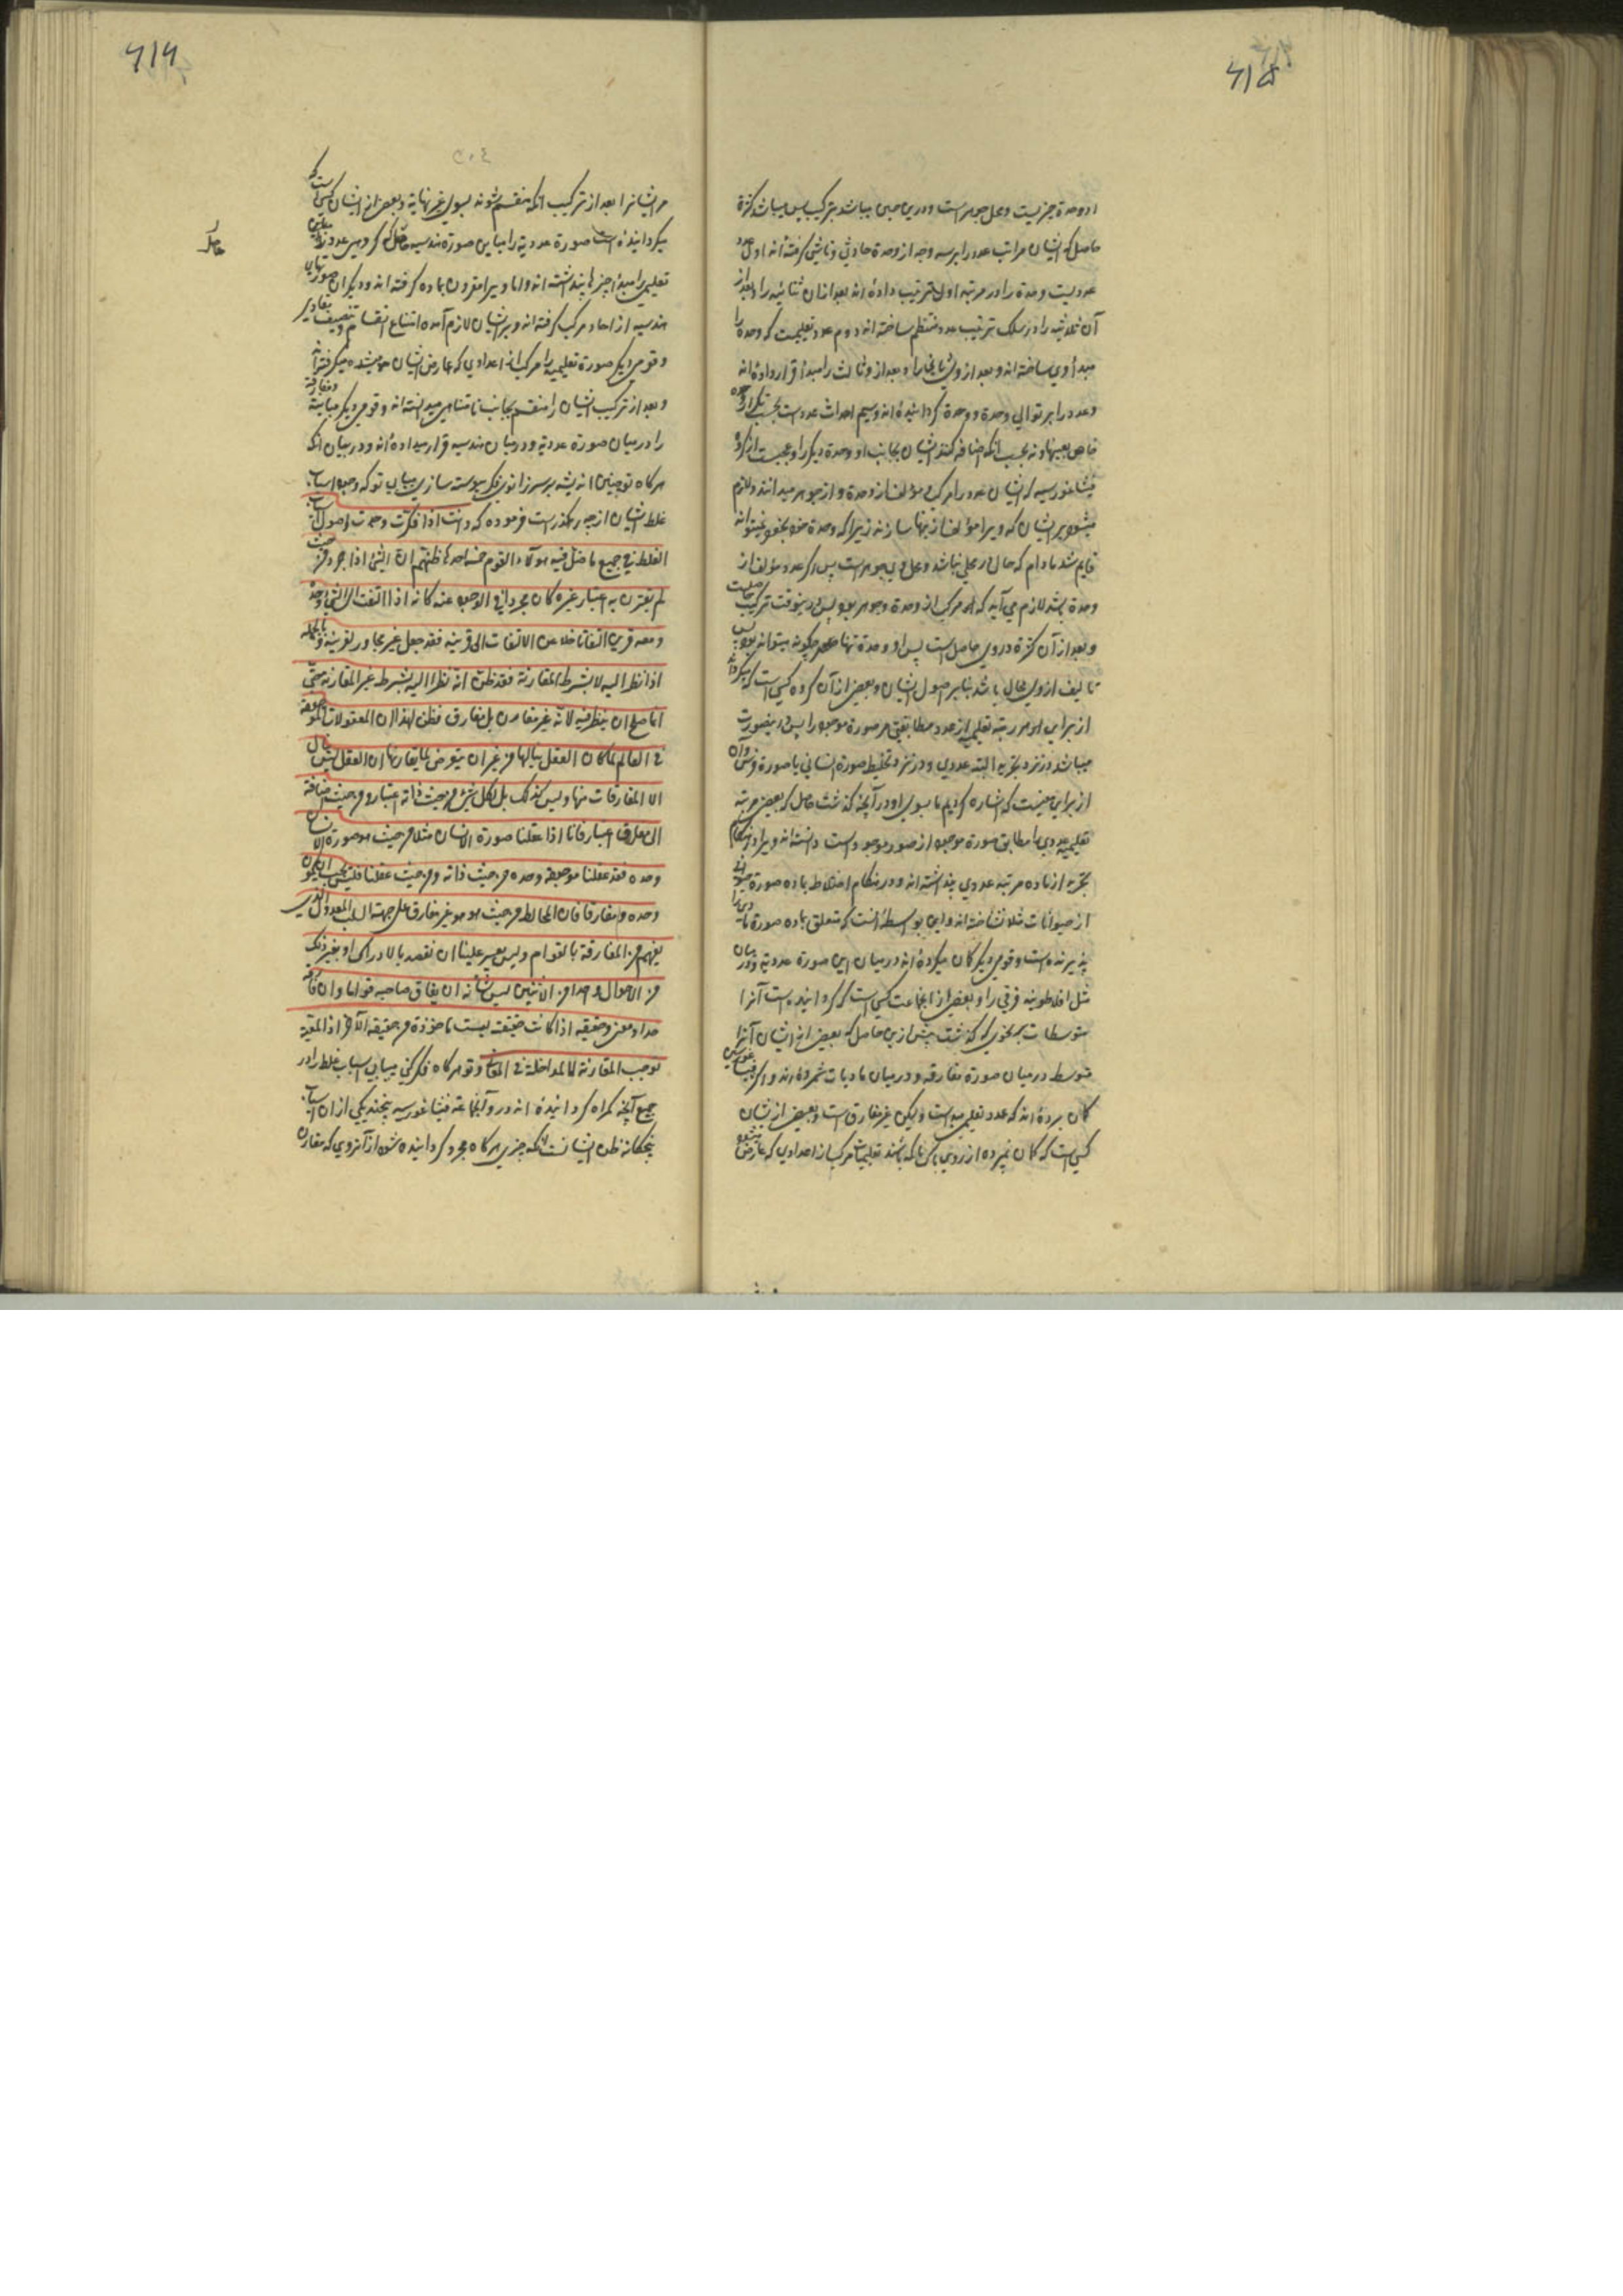 ۶۱۵
او وحدة جزئیست و محل جوهر است و درین حین میباشد بترکیب پس میباشد کثرة
حاصل که ایشان مراتب عدد را برسه وجه از وحدة حادث و ناشی گرفته‌اند اول عدد
عددیست وحدة را در مرتبه اول ترتیب داده اند بعد از ان ثنائیه را و بعد از
آن ثلاثیه را در سلک ترتیب عدد منتظم ساخته اند دوم عدد تعلیمیست که وحدة را
مبدأ وی ساخته اند و بعد از وی ثانی را و بعد از و ثالث را مبدأ قرار داده اند
و عدد را بر توالی وحدة و وحدة گردانیده اند و سیم احداث عدد است بحسب تکرار وحدة
خاص بعینها و نه بحسب آنکه اضافه کنند ایشان بجانب او وحدة دیگر را و عجبست از گروه
فیثاغورسیه که ایشان عدد را مرکب مؤلف از وحدة و از جوهر میدانند و لازم
میشود بر ایشان که ویرا مؤلف از تنها سازند زیرا که وحدة خود بخود نمیتواند
قایم شد مادام که حال در محلی نباشد و محل وی جوهر است پس اگر عدد مؤلف از
وحدة باشد لازم می آید که مرکب از وحدة و جوهر بود پس درینوقت ترکیب حاصلست
و بعد از آن کثرة در وی حاصل است پس او وحدة تنها چگونه میتواند بود پس
تالیف از وی محال باشد بنابر اصول ایشان و بعضی از آن گروه کسی است که میگرداند
از برای هر مرتبه تعلیمیه از عدد مطابقتی مر صورة موجود را پس درینصورت
میباشد در نزد تجرید البته عددی و در نزد تخلیط صورة انسانی یا صورة فرسی و آن
از برای معنیست که اشاره کردیم ما بسوی او در آنچه گذشت حاصل که بعضی مرتبه
تعلیمیه عددی را مطابق صورة موجود از صور موجودات دانسته اند ویرا در هنگام
تجرید از ماده مرتبه عددی پنداشته اند و در هنگام اختلاط بماده صورة حیوانی
از حیوانات مثلا شناخته اند و این بواسطه آنست که متعلق بماده صورة مادی را
پذیرنده است و قومی دیگر گمان میکرده اند در میان این صورة عددیه و در میان
مثل افلاطونیه فرقی را و بعضی از انجماعت کسی است که گردانیده است آنرا
متوسطات بنحوی که گذشت پیش ازین حاصل که بعضی از ایشان آنرا
متوسط در میان صورة مفارقه و در میان مادیات شمرده اند و اکثر فیثاغورسیین
گمان برده اند که عدد تعلیمی مبدأست و لیکن غیر مفارق است و بعضی از ایشان
کسی است که گمان نمیبرده از روی باکی ناکه باشند تعلیمیات مرکب از اعدادی که عارض میشود
۶۱۶
۵۰۴
مر ایشانرا بعد از ترکیب آنکه منقسم شوند بسوی غیر نهایة و بعضی از ایشان کسی است که
میگردانیده است صورة عددیه را مباین صورة هندسیه حاصل که گروهی عدد
تعلیمی را مبدأ چیزها پنداشته اند و اما ویرا مقرون بماده گرفته اند و دیگران صورتهای
هندسیه از آحاد مرکب گرفته اند و بر ایشان لازم آمده امتناع انقسام و تنصیف مقادیر
و قومی دیگر صورة تعلیمیه را مرکب از اعدادی که عارض ایشان میشده میگرفته اند
و بعد از ترکیب ایشان را منقسم بجانب نامتناهی میدانسته اند و قومی دیگر مباینه و مفارقه
را در میان صورة عددیه و در میان هندسیه قرار میداده اند و در بیان آنکه
هرگاه تو چنین اندیشه بر سر زانوی فکر پیوسته سازی میابی تو که وجوه اسباب
غلط ایشان از چه رهگذر است فرموده که وانت اذا فکرت وجدت اصول اسباب
الغلط فی جمیع ما ضل فیه هؤلاء القوم خمسة احدها ظنهم ان الشئ اذا جرد من حیث
لم یقترن به اعتبار غیره کان مجردا فی الوجود عنه کانه اذا التفت الی الشئ وحده
ومعه قرین التفاتا خلا من الالتفات الی قرینه فقد جعل غیر مجاور لقرینه و بالجمله
اذا نظر الیه لا بشرط المقارنة فقد ظن انه نظر الیه بشرط غیر المقارنة حتی
انما صلح ان ینظر فیه لانه غیر مقارن بل مفارق فظن لهذا ان المعقولات الموجوده
فی العالم لما کان العقل ینالها من غیر ان یتعرض لما یقارنها ان العقل لیس ینال
الا المفارقات منها و لیس کذلک بل لکل شئ من حیث ذاته اعتبار و من حیث اضافته
الی مقارن اعتبار فانا اذا عقلنا صورة الانسان مثلا من حیث هو صورة الانسان
وحده فقد عقلنا موجودا وحده من حیث ذاته و من حیث عقلنا فلیس یجب ان یکون
وحده و مفارقا فان المخالط من حیث هو هو غیر مفارق علی جهة السلب لا العدول الذی
یفهم من المفارقة بالقوام و لیس یعسر علینا ان نقصد بالادراک او بغیر ذلک
من الاحوال واحدا من الاثنین لیس شأنه ان یفارق صاحبه قواما و ان فارقه
حدا و معنی و حقیقة اذا کانت حقیقته لیست ماخوذة فی حقیقة الآخر اذ المعیة
توجب المقارنة لا المداخلة فی المعانی و تو هرگاه فکر کنی میابی اسباب غلط را در
جمیع آنچه گمراه گردانیده اند در و آنجماعة فیثاغورسیه پنجند یکی از ان اسباب
پنجگانه ظن ایشانست که چیزی هرگاه مجرد گردانیده شود از آنروی که مقارن